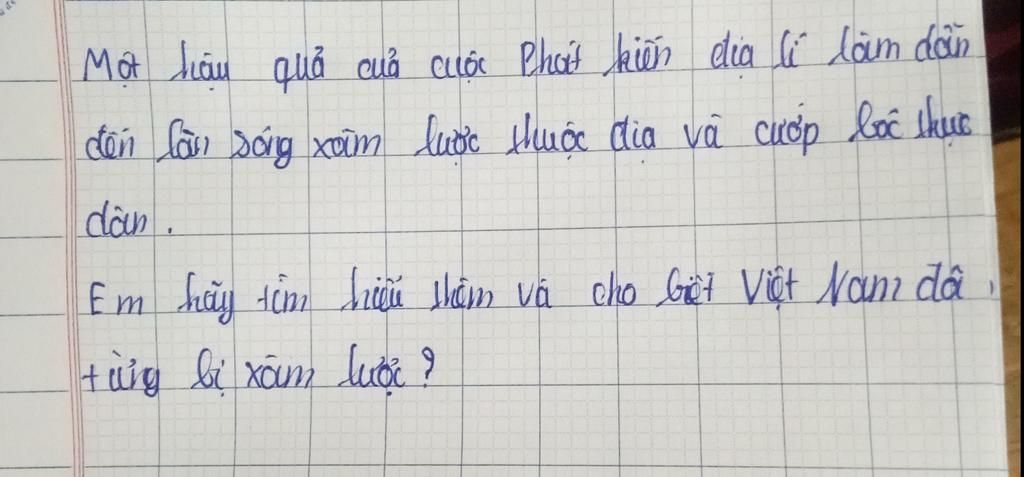 Một hậu quả cuả cuộc Phát kiến địa lí làm dẫn
đến làn sóng xâm lược thuộc địa và cướp bóc thực
dân.
Em hãy tìm hiểu thêm và cho biết Việt Nam đã
từng bị xâm lược?